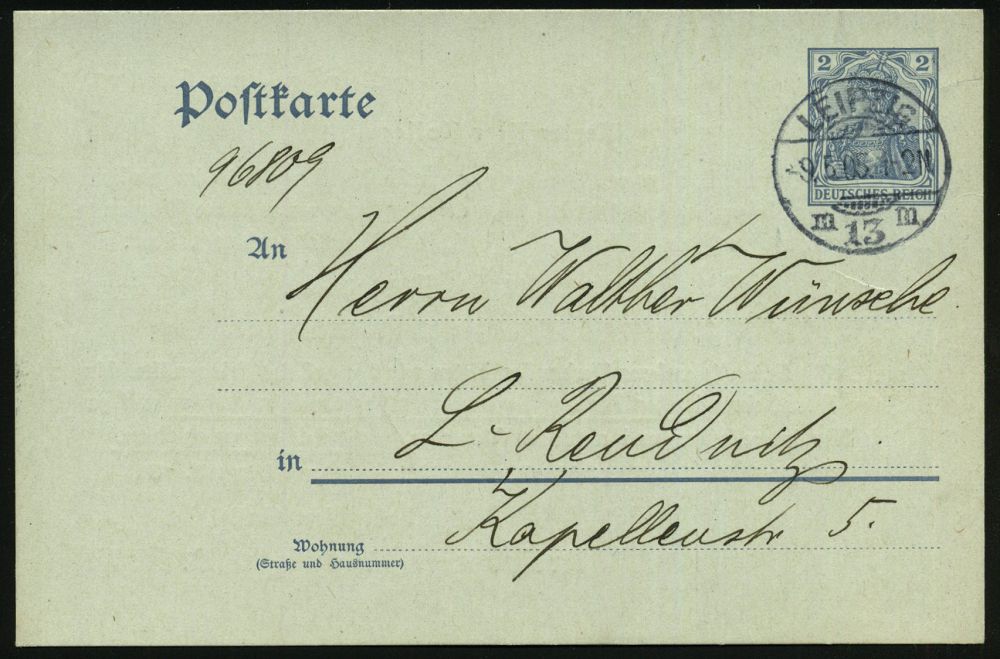 2 2
Postkarte
LEIPZIG
9.5.05.
DEUTSCHES REICH
m 13 m
96809
An Herrn Walther Wünsche.
in L-Reudnitz.
Kapellenstr 5.
Wohnung
(Straße und Hausnummer)